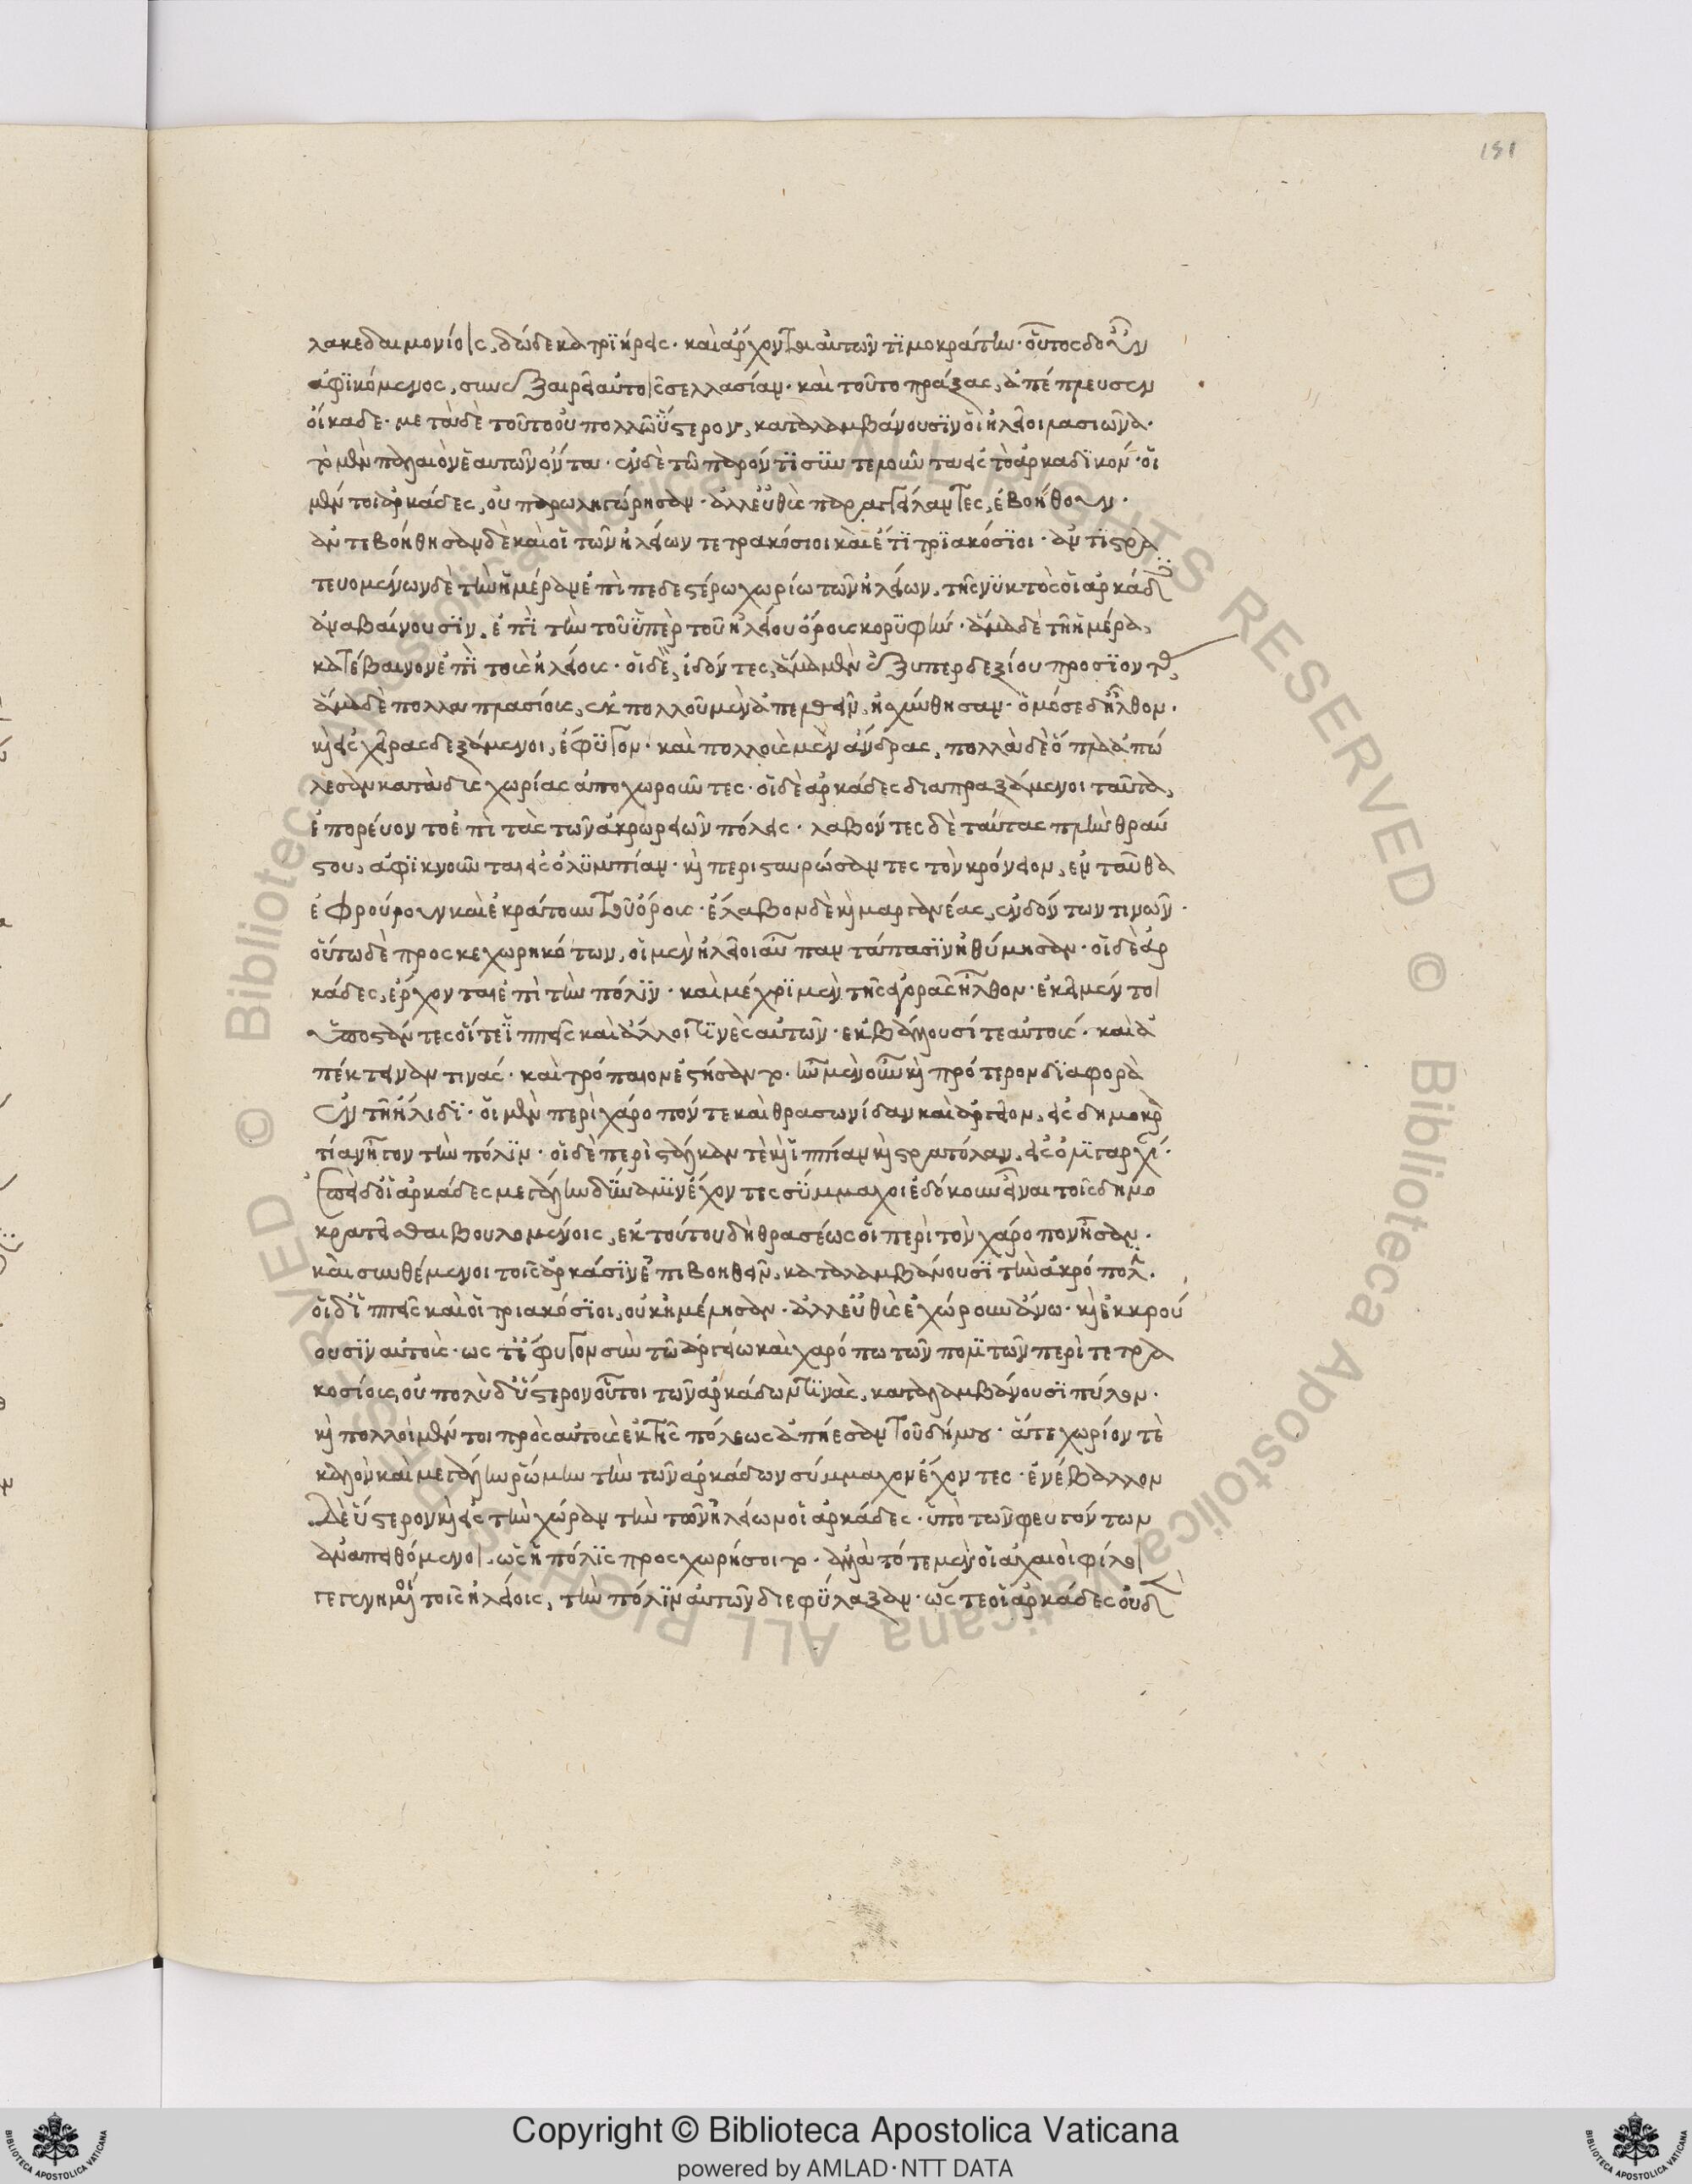 λακεδαιμονίοις, δώδεκα τρϊήρεις· καὶ ἄρχοντα αὐτῶν τϊμοκράτην· οὗτος δ' οὖν
ἀφϊκόμενος, συνεξαιρεῖ αὐτοῖς σελλασίαν· καὶ τοῦτο πράξας, ἀπέπλευσεν
οἴκαδε· μετὰ δὲ τοῦτο οὐ πολλῶ ὕστερον, καταλαμβάνουσϊν οἱ ἠλεῖοι λασιῶνα·
τὸ μὲν παλαιὸν ἑαυτῶν ὄντα· ἐν δὲ τῶ παρόντϊ σϋντελοῦντα εἰς τὸ ἀρκαδϊκόν· οἱ
μέν τοι ἀρκάδες, οὐ παρωληγώρησαν· ἀλλ' εὐθὺς παραγγείλαντες, ἐβοήθουν·
ἀντεβόηθησαν δὲ καὶ οἱ τῶν ἠλείων τετρακόσιοι καὶ ἔτϊ τρϊακόσϊοι· ἀντϊστρα
τευομένων δὲ τὴν ἡμέραν ἐπὶ πεδεστέρω χωρίω τῶν ἠλείων, τῆς νϋκτὸς οἱ ἀρκάδες
ἀναβαίνουσϊν, ἐπῒ τὴν τοῦ ὑπὲρ τοῦ ἠλείου ὄρους κορϋφήν· ἅμα δὲ τῆ ἡμέρα,
κατέβαινον ἐπῒ τοὺς ἠλείους· οἱ δὲ, ἰδόντες, ἅμα μὲν ἐξ υπερδεξίου προσϊοντας,
ἅμα δὲ πολλαπλασίους, ἐκ πολλοῦ μὲν ἀπελθεῖν, ἠσχύνθησαν· ὁμόσε δ' ἦλθον·
καὶ εἰς χεῖρας δεξάμενοι, ἔφϋγον· καὶ πολλοὺς μὲν ἄνδρας, πολλὰ δὲ ὅπλα ἀπώ
λεσαν κατὰ δυσχωρίας ἀποχωροῦντες· οἱ δὲ ἀρκάδες διαπραξάμενοι ταῦτα,
ἐπορεύοντο ἐπὶ τὰς τῶν ἀκρωρείων πόλεις· λαβόντες δὲ ταύτας πλὴν θραύ
στου, ἀφϊκνοῦνται εἰς ὀλϋμπίαν· καὶ περισταυρώσαντες τὸν κρόνειον, ἐνταῦθα
ἐφρούρουν καὶ ἐκράτουν τοῦ ὄρους· ἔλαβον δὲ καὶ μαργανέας, ἐνδόντων τινῶν·
οὕτω δὲ προσκεχωρηκότων, οἱ μὲν ἠλεῖοι αὖ παντάπασϊν ἠθύμησαν· οἱ δὲ ἀρ
κάδες, ἔρχονται ἐπὶ τὴν πόλϊν· καὶ μέχρϊ μὲν τῆς ἀγορᾶς ἦλθον· ἐκεῖ μέν τοι
ὑποστάντες οἵ τε ἱππεῖς καὶ ἄλλοι τϊνὲς αὐτῶν· ἐκβάλλουσί τε αὐτούς· καὶ ἀ
πέκτειναν τινάς· καὶ τρόπαιον ἐστήσαντο· ἦν μὲν οὖν καὶ πρότερον δϊαφορὰ
ἐν τῆ ἤλιδϊ· οἱ μὲν περὶ χάροπόν τε καὶ θρασωνίδαν καὶ ἀργεῖον, εἰς δημοκρα
τίαν ἦγον τὴν πόλϊν· οἱ δὲ περὶ στάλκαν τὲ καὶ ἱππίαν καὶ στρατόλαν, εἰς ὀλϊγαρχί·
ἐπεὶ δ' οἱ ἀρκάδες μεγάλην δύναμϊν ἔχοντες σϋμμαχοι ἐδόκουν εἶναι τοῖς δημο
κρατεῖσθαι βουλομένοις, ἐκ τούτου δὴ θρασέως οἱ περὶ τὸν χάροπον ἦσαν·
καὶ συνθέμενοι τοῖς ἀρκάσϊν ἐπιβοηθεῖν, καταλαμβάνουσϊ τὴν ἀκρόπολιν·
οἱ δ' ἱππεῖς καὶ οἱ τριακόσϊοι, οὐκ ἠμέλησαν· ἀλλ' εὐθὺς ἐχώρουν ἄνω· καὶ ἐκκρού
ουσϊν αὐτοὺς· ὥς τ' ἔφυγον σὺν τῶ ἀργείω καὶ χαρόπω τῶν πολϊτῶν περὶ τετρα
κοσίους, οὐ πολὺ δ' ὕστερον οὗτοι τῶν ἀρκάδων τϊνὰς, καταλαμβάνουσϊ πύλον·
καὶ πολλοὶ μέν τοι πρὸς αὐτοὺς ἐκ τῆς πόλεως ἀπήεσαν τοῦ δήμου· ἅτε χωρίον τὲ
καλὸν καὶ μεγάλην ῥώμην τὴν τῶν ἀρκάδων σύμμαχον ἔχοντες· ἐνέβαλλον
δὲ ὕστερον καὶ εἰς τὴν χώραν τὴν τῶν ἠλείων οἱ ἀρκάδες· ὑπὸ τῶν φευγόντων
ἀναπειθόμενοι, ὡς ἡ πόλϊς προσχωρήσοιτο· ἀλλὰ τότε μὲν οἱ ἀχαιοὶ φίλοι
γεγενημένοι τοῖς ἠλείοις, τὴν πόλϊν αὐτῶν διεφϋλαξαν· ὥς τε οἱ ἀρκάδες οὐδὲν